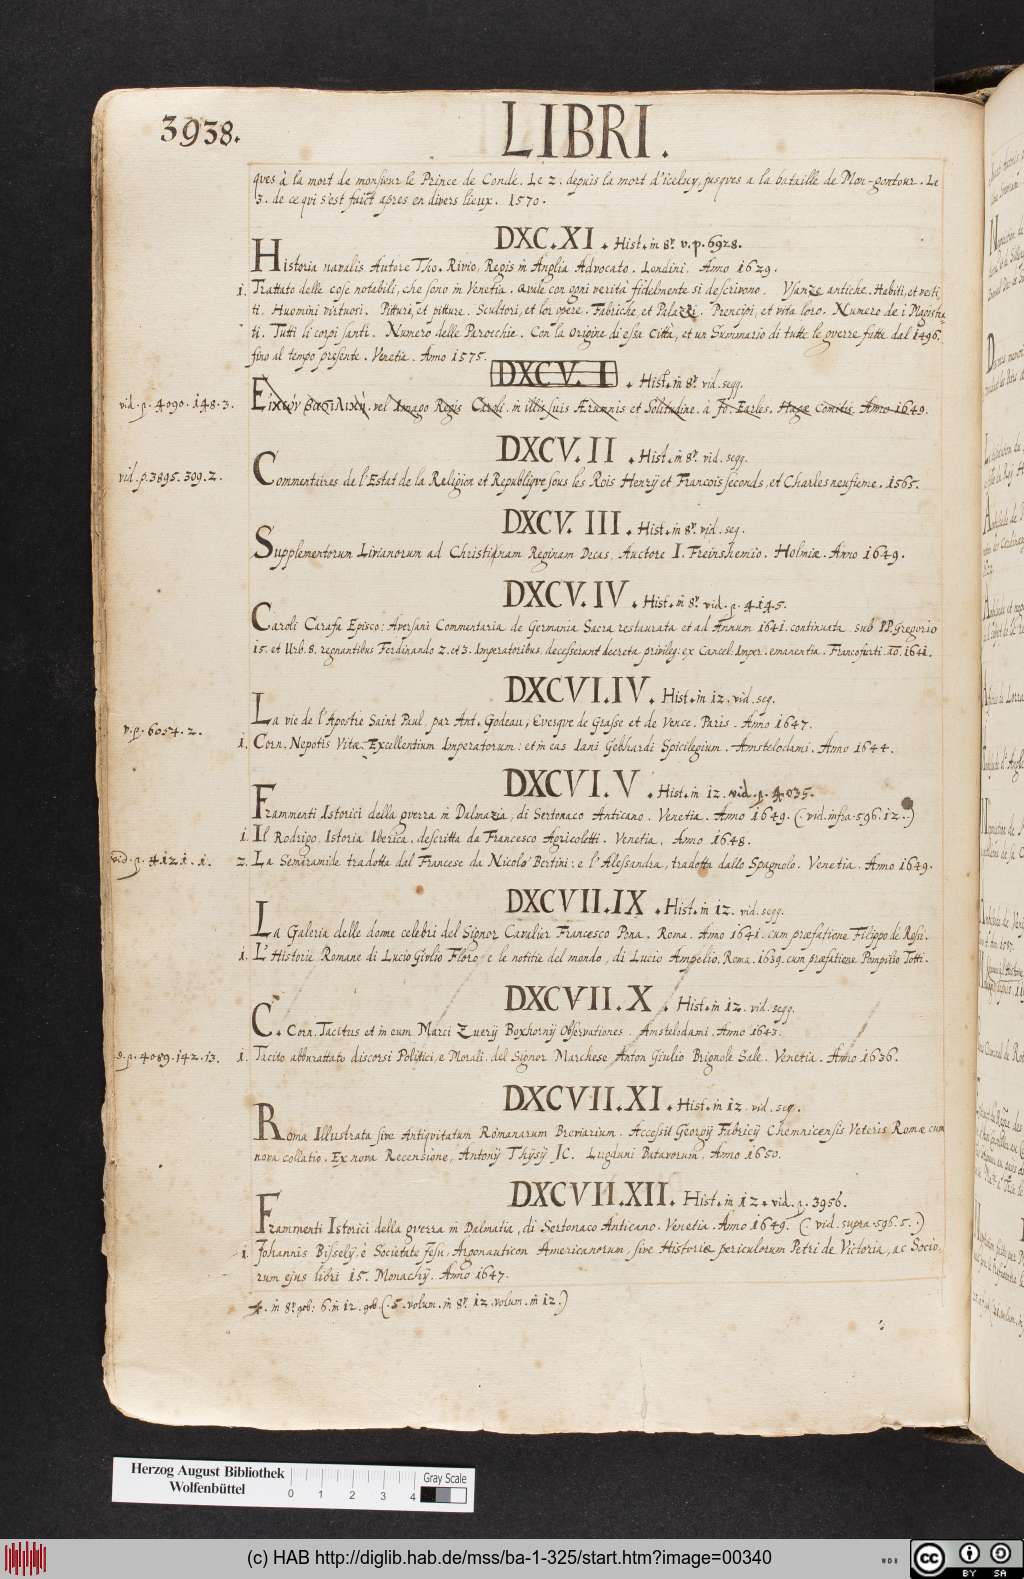 3938.
LIBRI.
ques à la mort de monsieur le Prince de Condé. Le 2. depuis la mort d'iceluy, jusques a la bataille de Mon-gontour. Le
3. de ce qui s'est faict apres en divers lieux. 1570.
DXC.XI. Hist. in 8º. v. p. 6928.
Historia navalis Autore Tho. Rivio, Regis in Anglia Advocato. Londini, Anno 1629.
1. Trattato delle cose notabili, che sono in Venetia. Quale con ogni verità fidelmente si descrivono. Vsanze antiche. Habiti, et vesti
ti. Huomini virtuosi. Pitturi, et pitture. Scultori, et lor opere. Fabriche, et Palazzi. Prencipi, et vita loro. Numero de i Magistra
ti. Tutti li corpi santi. Numero delle Parocchie. Con la Origine di essa Città, et un Summario di tutte le guerre fatte dal 1496.
fino al tempo presente. Venetia. Anno 1575.
DXCV. I. Hist. in 8º. vid. seqq.
vid. p. 4090. 148. 3.
Εἰκὼν βασιλικὴ, vel Imago Regis Caroli. in illis suis Ærumnis et Solitudine. à Jo. Earles. Hagæ Comitis. Anno 1649.
DXCV. II. Hist. in 8º. vid. seqq.
vid. p. 3895. 309. 2.
Commentaires de l'Estat de la Religion et Republique sous les Rois Henry et Francois seconds, et Charles neufieme. 1565.
DXCV. III. Hist. in 8º. vid. seq.
Supplementorum Livianorum ad Christinam Reginam Decas, Auctore I. Freinshemio. Holmiæ. Anno 1649.
DXCV. IV. Hist. in 8º. vid. p. 4145.
Caroli Carafa Episco: Aversani Commentaria de Germania Sacra restaurata et ad Annum 1641. continuata sub PP. Gregorio
15. et Urb. 8. regnantibus Ferdinando 2. et 3. Imperatoribus. decesserunt decreta privileg: ex Cancel: Imper. emanentia. Francofurti. ao. 1641.
DXCVI.IV. Hist. in 12. vid. seq.
La vie de l'Apostre Saint Paul, par Ant. Godeau, Evesque de Grasse et de Vence. Paris. Anno 1647.
v. p. 6054. 2.
1. Corn. Nepotis Vitæ Excellentium Imperatorum: et in eas Iani Gebhardi Spicilegium. Amstelodami. Anno 1644.
DXCVI.V. Hist. in 12. vid. p. 4035.
Frammenti Istorici della guerra in Dalmazia, di Sertonaco Anticano. Venetia. Anno 1649. (. vid. infra. 596. 12 .)
1. Il Rodrigo, Istoria Iberica, descritta da Francesco Agricoletti. Venetia. Anno 1648.
vid. p. 4121. 1.
2. La Semiramide tradotta dal Francese da Nicolo Bertini: e l'Alessandra, tradotta dallo Spagnolo. Venetia. Anno 1649.
DXCVII.IX. Hist. in 12. vid. seqq.
La Galeria delle donne celebri del Signor Cavalier Francesco Pona. Roma. Anno 1641. cum præfatione Filippo de Rossi.
1. L'Historie Romane di Lucio Giulio Floro e le notitie del mondo, di Lucio Ampelio. Roma. 1639. cum præfatione Pompilio Totti.
DXCVII.X. Hist. in 12. vid. seqq.
C. Corn. Tacitus et in eum Marci Zuerij Boxhornij Observationes. Amstelodami. Anno 1643.
v. p. 4089. 142. 13.
1. Tacito abburattato discorsi Politici, e Morali, del Signor Marchese Anton Giulio Brignole Sale. Venetia. Anno 1636.
DXCVII.XI. Hist. in 12. vid. seq.
Roma Illustrata sive Antiquitatum Romanarum Breviarium. Accessit Georgij Fabricij Chemnicensis Veteris Romæ cum
nova collatio. Ex nova Recensione, Antonij Thysij JC. Lugduni Batavorum. Anno 1650.
DXCVII.XII. Hist. in 12. vid. p. 3956.
Frammenti Istorici della guerra in Dalmatia, di Sertonaco Anticano. Venetia. Anno 1649. (. vid. supra. 596. 5. .)
1. Johannis Bissely, è Societate Jesu, Argonauticon Americanorum, sive Historiæ periculorum Petri de Victoria, ac Socio-
rum ejus libri 15. Monachij. Anno 1647.
4. in 8º. geb: 6. in 12. geb. (. 5. volum. in 8º. 12. volum. in 12 .)
Herzog August Bibliothek
Wolfenbüttel
0 1 2 3 4
Gray Scale
(c) HAB http://diglib.hab.de/mss/ba-1-325/start.htm?image=00340
WDB
cc BY SA